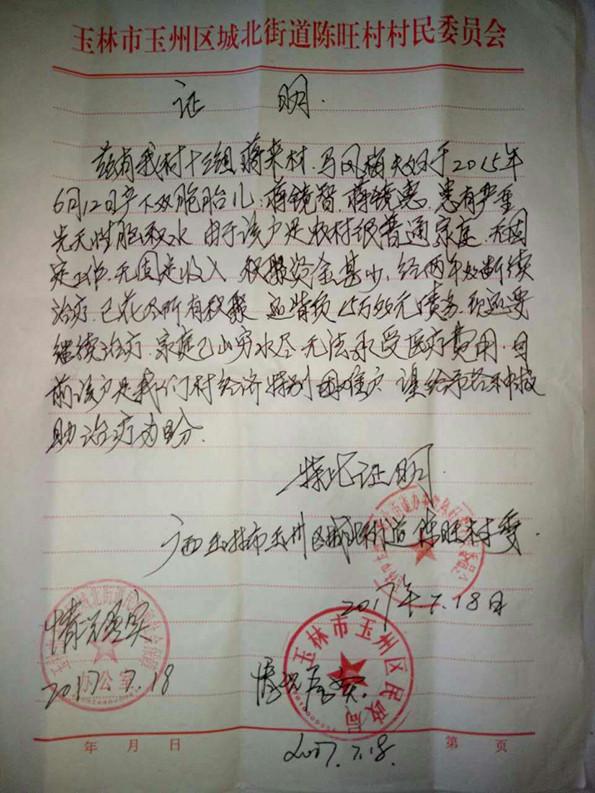 玉林市玉州区城北街道陈旺村村民委员会
证 明.
兹有我村十三组蒋来材、马凤梅夫妇于2015年
6月12日产下双胞胎儿:蒋镜智、蒋镜惠,患有严重
先天性脑积水 由于该户是农村很普通家庭,无固
定工作,无固定收入 积聚资金甚少,经两年如断续
治疗,已花尽所有积聚 还背负15万多元债务,现还要
继续治疗,家庭已山穷水尽 无法承受医疗费用,目
前该户是我们村经济特别困难户 谨给予
助治疗为盼.
特此证明
广西玉林市玉州区城北街道陈旺村委.
2017年7.18日
情况属实
2017 7.18
办公室
玉林市玉州区民政局
情况属实.
2007.7.18.
年 月 日 第 页